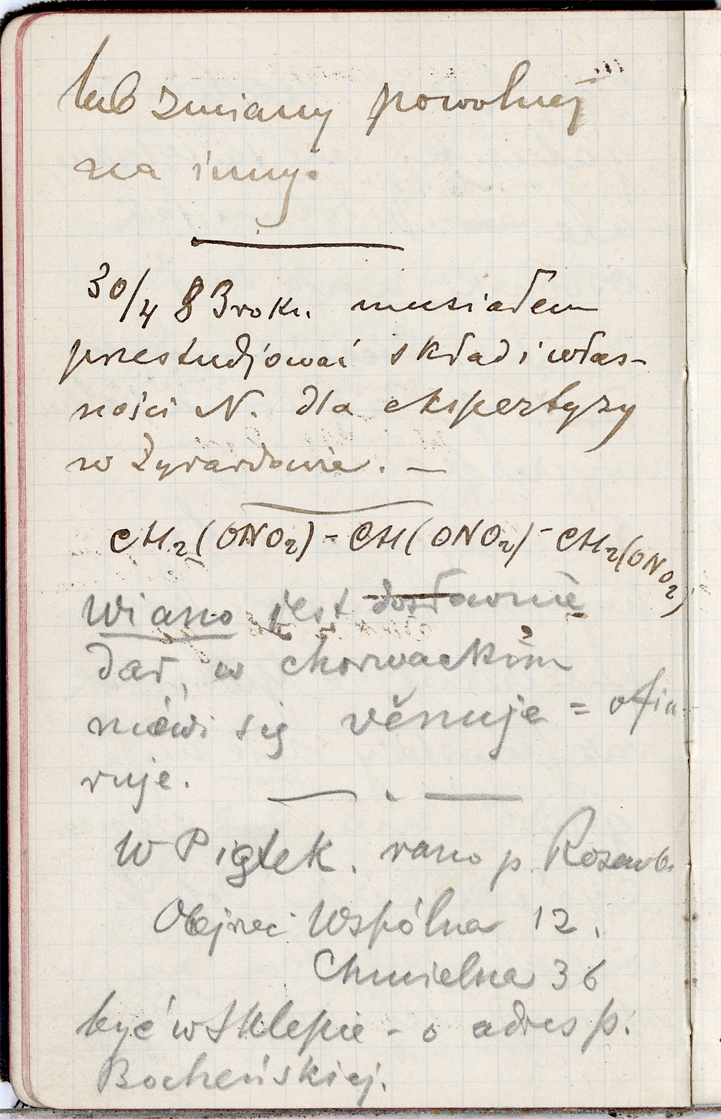 lub zmiany powolnej
na inny.
30/4 83 roku. musiałem
przestudjować skład i włas-
ności N. dla ekspertyzy
w Żyrardowie. —
CH2(ONO2) - CH(ONO2) - CH2(ONO2)
Wiano jest dosłownie
dar, w chorwackim
mówi się věnuje = ofia-
ruje.
W Piątek. rano p.
Obejrzeć Wspólna 12.
Chmielna 36
być w sklepie - o adres p.
Bocheńskiej.